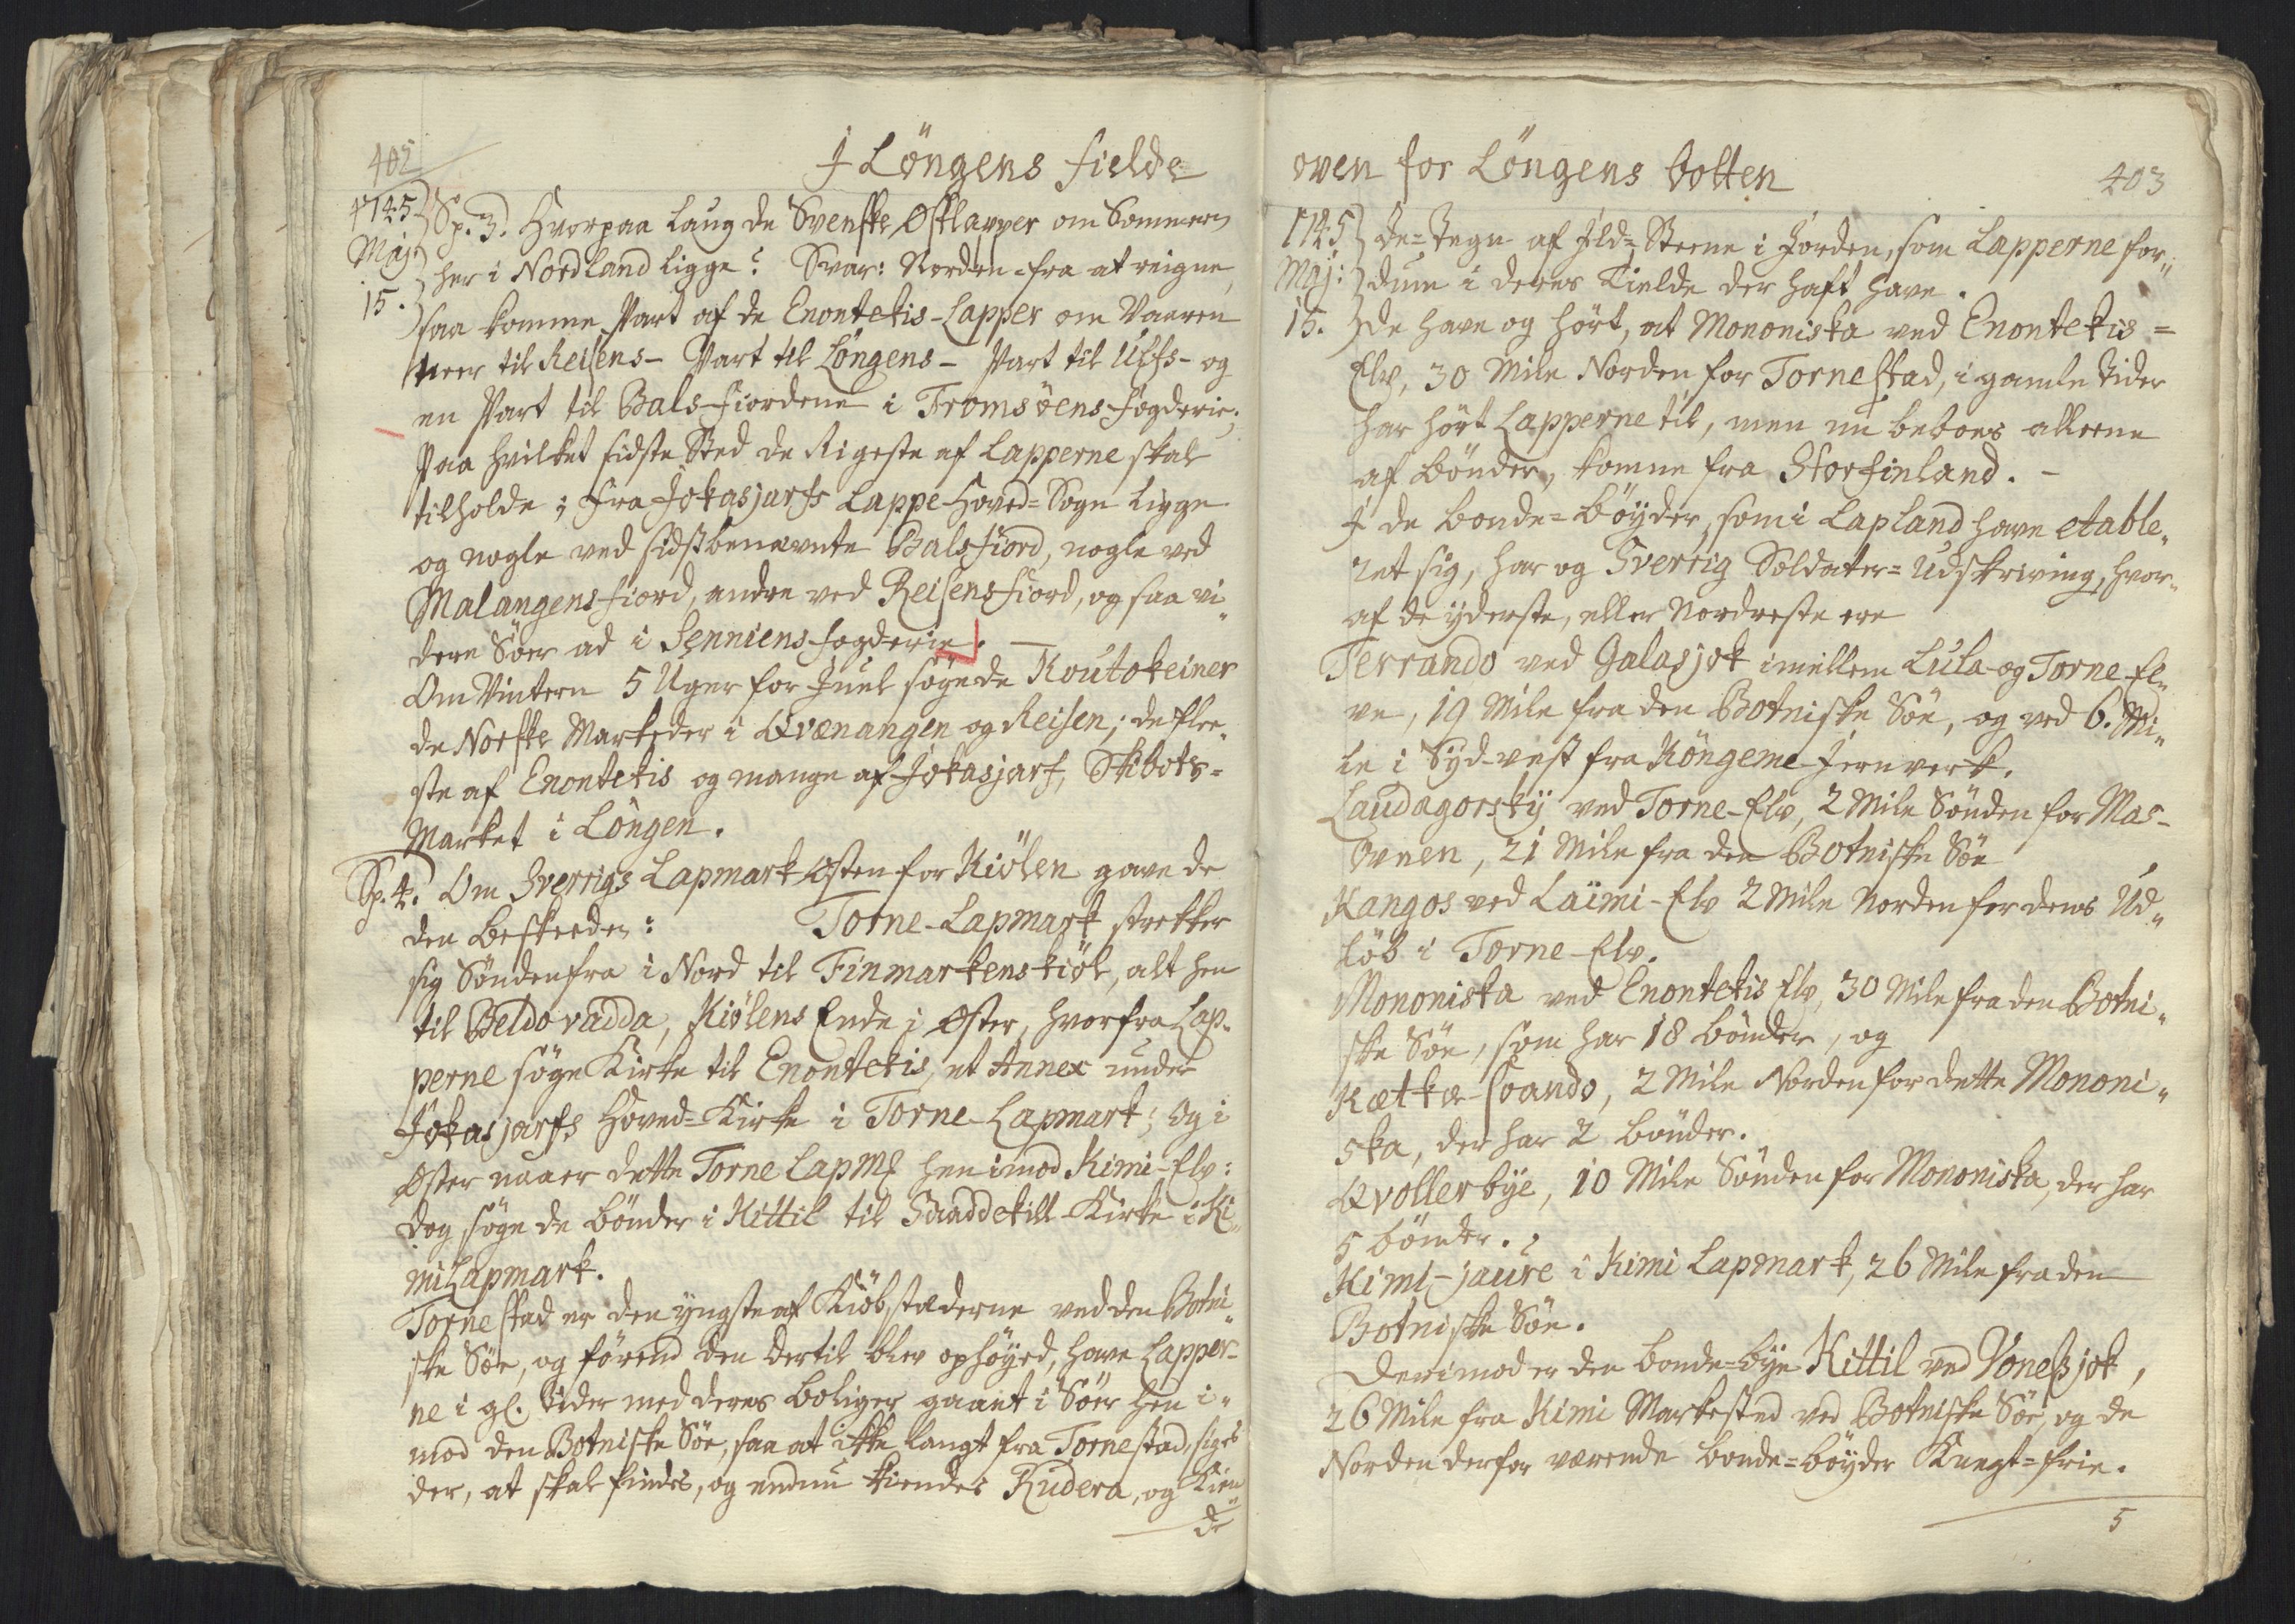 402
I Löngens Fielde
1745
Maj:
15.
Sp. 3. Hvorpaa laug de Svenske Østlapper om Sommeren
her i Nordland ligge? Svar: Norden-fra at reigne,
saa komme Part af de Enontekis-Lapper om Vaaren
neer til Reisens- Part til Löngens- Part til Ulfs- og
en Part til Bals-fiordene i Tromsöens-fogderie;
Paa hvilket sidste Sted de Rigeste af Lapperne skal
tilholde; Fra Jokasjarfs Lappe-Hoved-Sogn ligge
og nogle ved sidstbenævnte Balsfiord, nogle ved
Malangens-fiord, andre ved Reisensfiord, og saa vi„
dere Sör ad i Senniens-fogderie. —
Om Vintern 5 Uger for Juul søge de Koutokeiner
de Norske Markeder i Qvænangen og Reisen; de flee„
ste af Enontekis og mange af Jokasjarf, Skibots-
Market i Löngen.
Sp. 4. Om Sverrigs Lapmark Østen for Kiölen gave de
den Beskeeden: Torne-Lapmark strekker
sig Söndenfra i Nord til Finmarkens kiöl, alt hen
til Beldovadda, Kiölens Ende i Øster, hvorfra Lap-
perne söge Kirke til Enontekis, et Annex under
Jokasjarfs Hoved-Kirke i Torne-Lapmark; Og i
Øster naaer dette Torne Lapmk hen imod Kimi-Elv:
dog söge de bönder i Kittil til Såaddekill Kirke i Ki„
mi Lapmark.
Torne stad er den yngste af Kiöbstæderne ved den Botni„
ske Söe, og förend den dertil blev ophöyed, have Lapper-
ne i gl. Tider med deres boliger gaaet i Sör hen i„
mod den Botniske Söe, saa at ikke langt fra Torne stad, siges
der, at skal findes, og endnu kiendes Rudera, og Kien„
de
oven for Löngens botten
403
1745
Maj:
15.
de-Tegn af Ild-Steene i Jorden, som Lapperne for„
dum i deres Tielde der haft have.
De have og hört, at Mononiska ved Enontekis=
Elv, 30 Mile Norden for Torne stad, i gamle Tider
har hört Lapperne til, men nu beboes alleene
af bönder, komne fra Storfinland. —
I de bonde-böyder, som i Lapland have etable„
ret sig, har og Sverrig Soldater-Udskriving, hvor„
af de yderste, eller Nordreste ere
Terrando ved Galasjok imellem Lula- og Torne-El„
ve, 19 Mile fra den Botniske Söe, og ved 6. Mi„
le i Syd-vest fra Köngeme-Jernverk.
Laudagorsky ved Torne-Elv, 2 Mile Sönden for Mas-
Ovnen, 21 Mile fra den Botniske Söe
Kangos ved Laimi-Elv 2 Mile Norden for dens Ud„
löb i Torne-Elv.
Mononiska ved Enontekis Elv, 30 Mile fra den Botni„
ske Söe, som har 18 bönder, og
Kætka-svando, 2 Mile Norden for dette Mononi„
ska, der har 2 bönder.
Qvollerbye, 10 Mile Sönden for Mononiska, der har
5 bönder.
Kimi-jaure i Kimi Lapmark, 26 Mile fra den
Botniske Söe.
Derimod er den bonde-bye Kittil ved Voneßjok,
26 Mile fra Kimi Markested ved Botniske Söe, og de
Norden derfor værende bonde-böyder Knegt-frie.
5